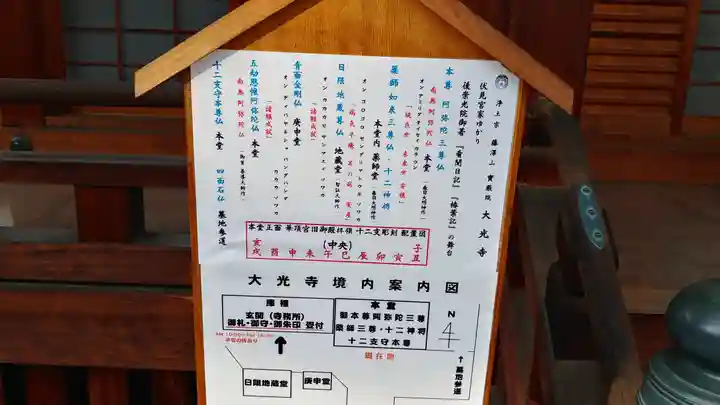 浄土宗 藤澤山 寳厳院 大光寺
伏見宮家ゆかり
後崇光院御著『看聞日記』『椿葉記』の舞台
本尊 阿弥陀三尊仏 本堂
南無阿弥陀仏
オンアミリタテイセイカラウン
薬師如来三尊仏・十二神将
本堂内 薬師堂
オン コロコロ センダリマトウギ ソワカ
日限地蔵尊仏 地蔵堂
オン カカカビ サンマエイ ソワカ
青面金剛仏 庚申堂
「諸難成就」
五劫思惟阿弥陀仏 本堂
南無阿弥陀仏
十二支守本尊仏 本堂
四面石仏 墓地参道
本堂正面 華頂宮旧御殿拝領 十二支彫刻 配置図
(中央)
亥 子
戌 酉 申 未 午 巳 辰 卯 寅 丑
大光寺境内案内図
庫裡
玄関(寺務所)
御札・御守・御朱印 受付
本堂
御本尊阿弥陀三尊
薬師三尊・十二神将
十二支守本尊
N
現在地
日限地蔵堂
庚申堂
墓地参道